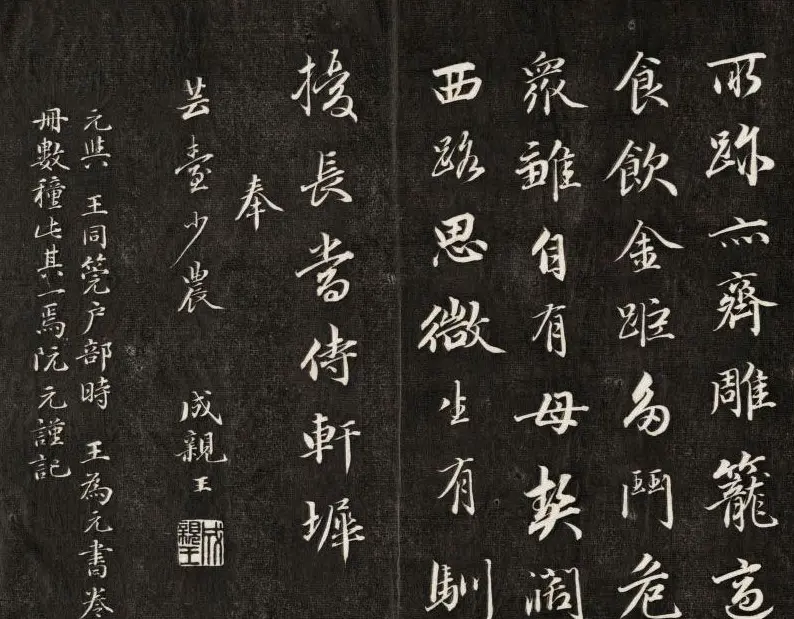 所跡亦齊雕籠高
食飲金距多鬭危
眾雛自有母契闊
西路思微生有馴
擾長當侍軒墀
奉
芸臺少農 成親王
成親王
元與 王同筦戶部時 王為元書卷
冊數種此其一焉阮元謹記